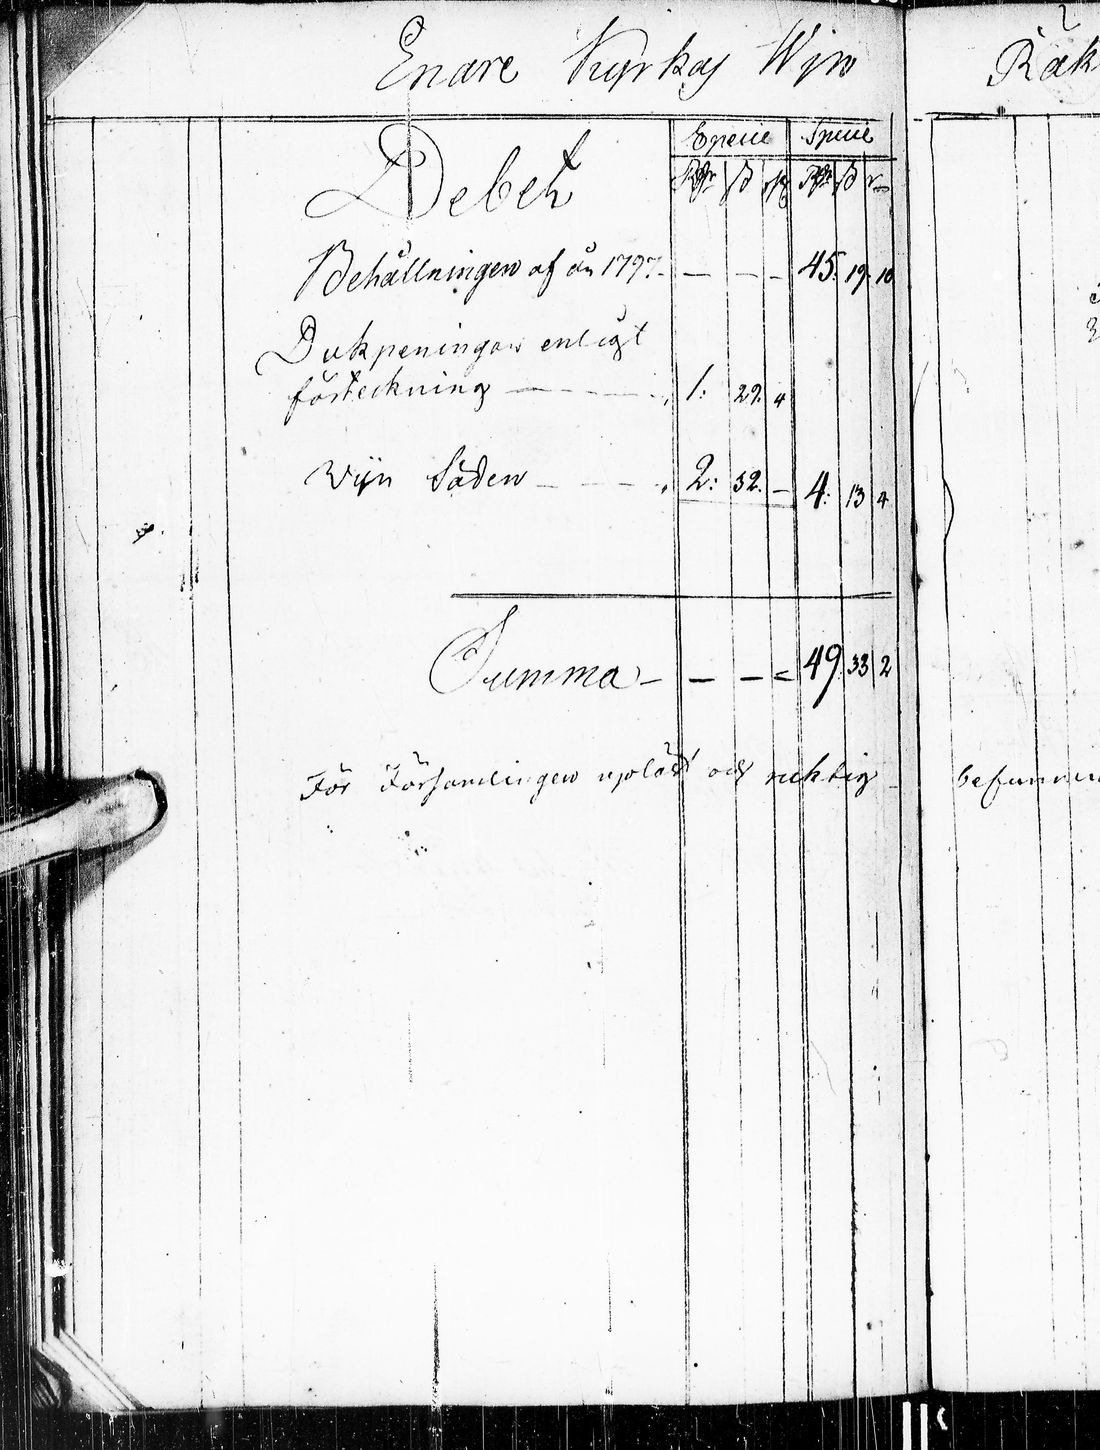 Enare Kyrkas Wijn Räk
Debet
Specie Specie
Rdr ß rs Rdr ß rs
Behållningen af år 1797 - - - 45. 19. 10
Dukpeningar enligt
förteckning - - - 1: 29. 4
Wijn Säden - - - 2: 32. - 4: 13 4
Summa - - - - 49. 33 2
För Församlingen upläst och ricktig befunnen